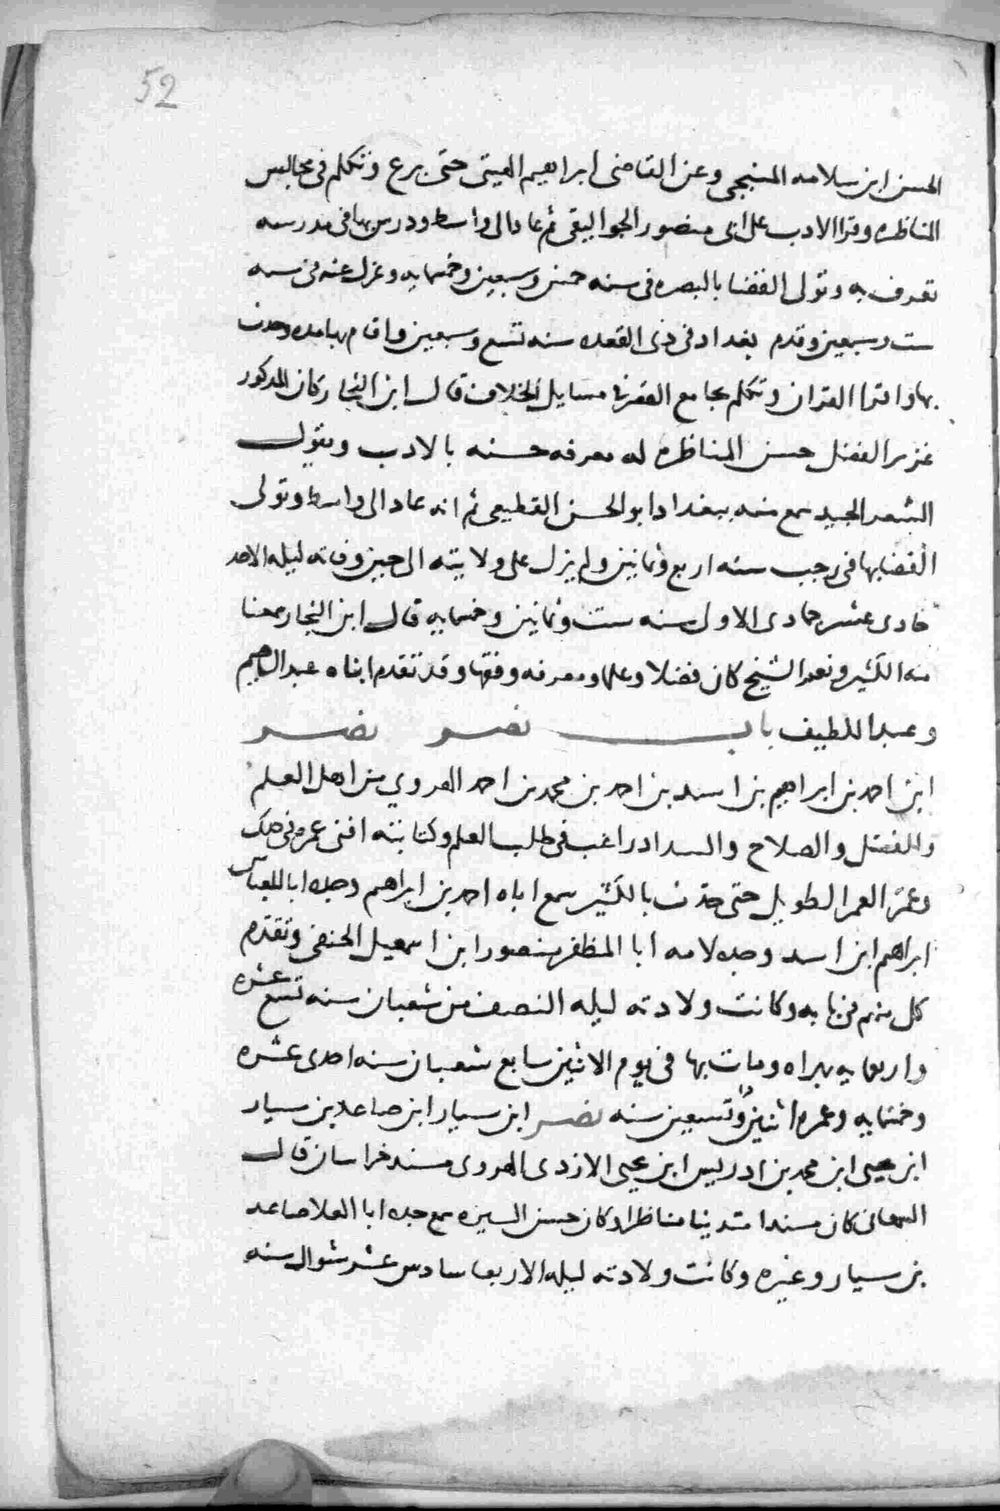 52
الحسن ابن سلامه المنبجى وعن القاضى ابراهيم الهيتى حتى برع وتكلم فى مجالس
المناظره وقرا الادب على ابى منصور الجواليقى ثم عاد الى واسط ودرس بها فى مدرسه
تعرف به وتولى القضا بالبصره فى سنه خمس وسبعين وخمسمايه وعزل عنه فى سنه
ست وسبعين وقدم بغداد فى ذى القعده سنه تسع وسبعين واقام بها مده وحدث
بها واقرا القران وتكلم بجامع القصر فى مسايل الخلاف قال ابن النجار كان المذكور
غزير الفضل حسن المناظره له معرفه حسنه بالادب ويقول
الشعر الجيد سمع منه ببغداد ابو الحسن القطيعى ثم انه عاد الى واسط وتولى
القضا بها فى رجب سنه اربع وثمانين ولم يزل على ولايته الى حين وفاته ليله الاحد
حادى عشر جمادى الاول سنه ست وثمانين وخمسمايه قال ابن النجار سمعنا
منه الكثير ونعم الشيخ كان فضلا وعلما ومعرفه وفقها وقد تقدم ابناه عبد الرحيم
وعبد اللطيف باب نصر نصر
ابن احمد بن ابراهيم بن اسد بن احمد بن محمد بن احمد الهروي من اهل العلم
والفضل والصلاح والسداد راغب فى طلب العلم وكتابته افنى عمره فى ذلك
وعمّر العمر الطويل حتى حدث بالكثير سمع اباه احمد بن ابراهيم وجده ابا العباس
ابراهيم ابن اسد وجده لامه ابا المظفر منصور ابن اسمعيل الحنفى وتقدم
كل منهم فى بابه وكانت ولادته ليله النصف من شعبان سنه تسع عشره
واربعمايه بهراه ومات بها فى يوم الاثنين سابع شعبان سنه احدى عشره
وخمسمايه وعمره اثنين وتسعين سنه نصر ابن سيار ابن صاعد بن سيار
ابن يحيى ابن محمد بن ادريس ابن يحيى الازدى الهروى مسند خراسان قال
السمعانى كان مسندا متدينا مناظرا وكان حسن السيره سمع جده ابا العلا صاعد
بن سيار وغيره وكانت ولادته ليله الاربعا سادس عشر شوال سنه